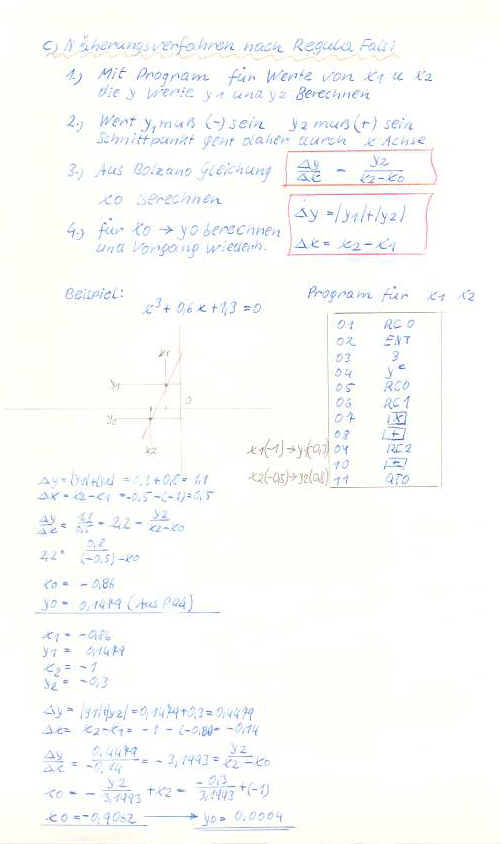 c) Näherungsverfahren nach Regula Falsi
1.) Mit Program für Werte von x1 u x2
die y Werte y1 und y2 Berechnen
2.) Wert y1 muß (-) sein y2 muß (+) sein
Schnittpunkt geht daher durch x Achse
3.) Aus Bolzano Gleichung Δy/Δx = y2/(x2-x0)
x0 berechnen
Δy = |y1|+|y2|
4.) für x0 → y0 berechnen
und Vorgang wiederh. Δx = x2-x1
Beispiel:
x³+0,6x+1,3=0
x1
y1
0
y0
x2
Program für x1 x2
01 RC0
02 ENT
03 3
04
05 RC0
06 RC1
07 x
08 +
x1(-1)→y1(-0,3) 09 RC2
10
x2(-0,5)→y2(0,8) 11 GTO
Δy = |y1|+|y2| = 0,3+0,8=1,1
Δx = x2-x1 = -0,5-(-1)=0,5
Δy/Δx = 1,1/0,5 = 2,2 = y2/(x2-x0)
2,2 = 0,8/((-0,5)-x0)
x0 = -0,86
y0 = 0,1479 (Aus
x1 = -0,86
y1 = 0,1479
x2 = -1
y2 = -0,3
Δy = |y1|+|y2| = 0,1479+0,3=0,4479
Δx = x2-x1 = -1-(-0,86)= -0,14
Δy/Δx = 0,4479/-0,14 = -3,1993 = y2/(x2-x0)
x0 = - y2/3,1993 + x2 = -0,3/3,1993 +(-1)
x0 = -0,9062 → y0 = 0.0004